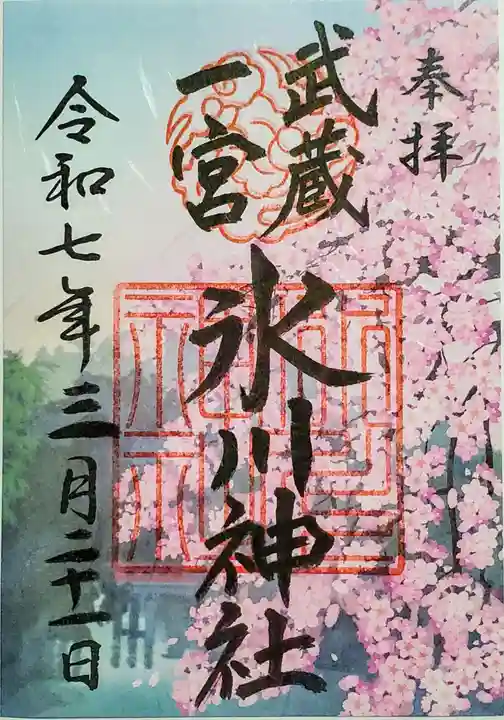 奉拝
武蔵
一宮
氷川神社
令和七年三月二十一日